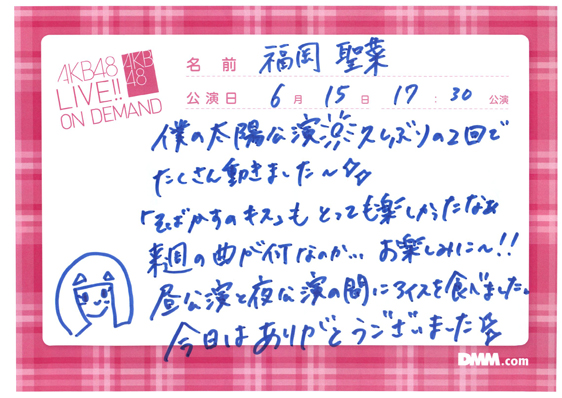 AKB48
LIVE!!
ON DEMAND
AKB
48
名前 福岡 聖菜
公演日 6月 15日 17:30 公演
僕の太陽公演 久しぶりの2回で
たくさん動きました〜
「そばかすのキス」も とっても楽しかったなぁ
来週の曲が何なのか… お楽しみに〜!!
昼公演と夜公演の間にアイスを食べました。
今日はありがとうございました
DMM.com